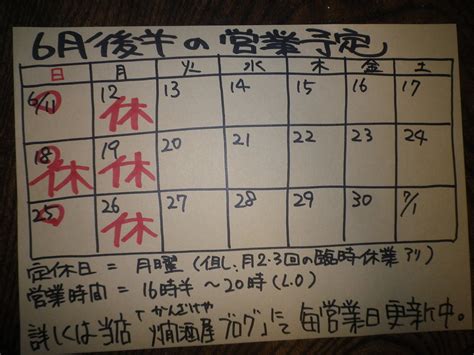 6月後半の営業予定
日 月 火 水 木 金 土
6/11 12 休 13 14 15 16 17
18 休 19 休 20 21 22 23 24
25 26 休 27 28 29 30 7/1
定休日 = 月曜 (但し、月2.3回の臨時休業アリ)
営業時間 = 16時半〜20時(L.O)
かんざけや
詳しくは当店「燗酒屋ブログ」にて毎営業日更新中。